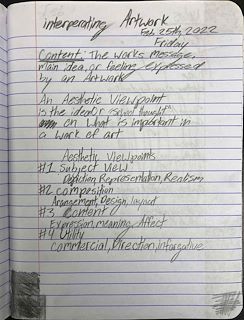 interperating Artwork
Feb 25th, 2022
Friday
Content: The works message,
main idea, or feeling expressed
by an Artwork
An Aesthetic Viewpoint
is the idea or "school thought"
on what is important in
a work of art
Aesthetic Viewpoints
#1 Subject View
Depiction, Representation, Realism
#2 composition
Arrangement, Design, layout
#3 Content
Expression, meaning, Affect
#4 Utility
Commercial, Direction,